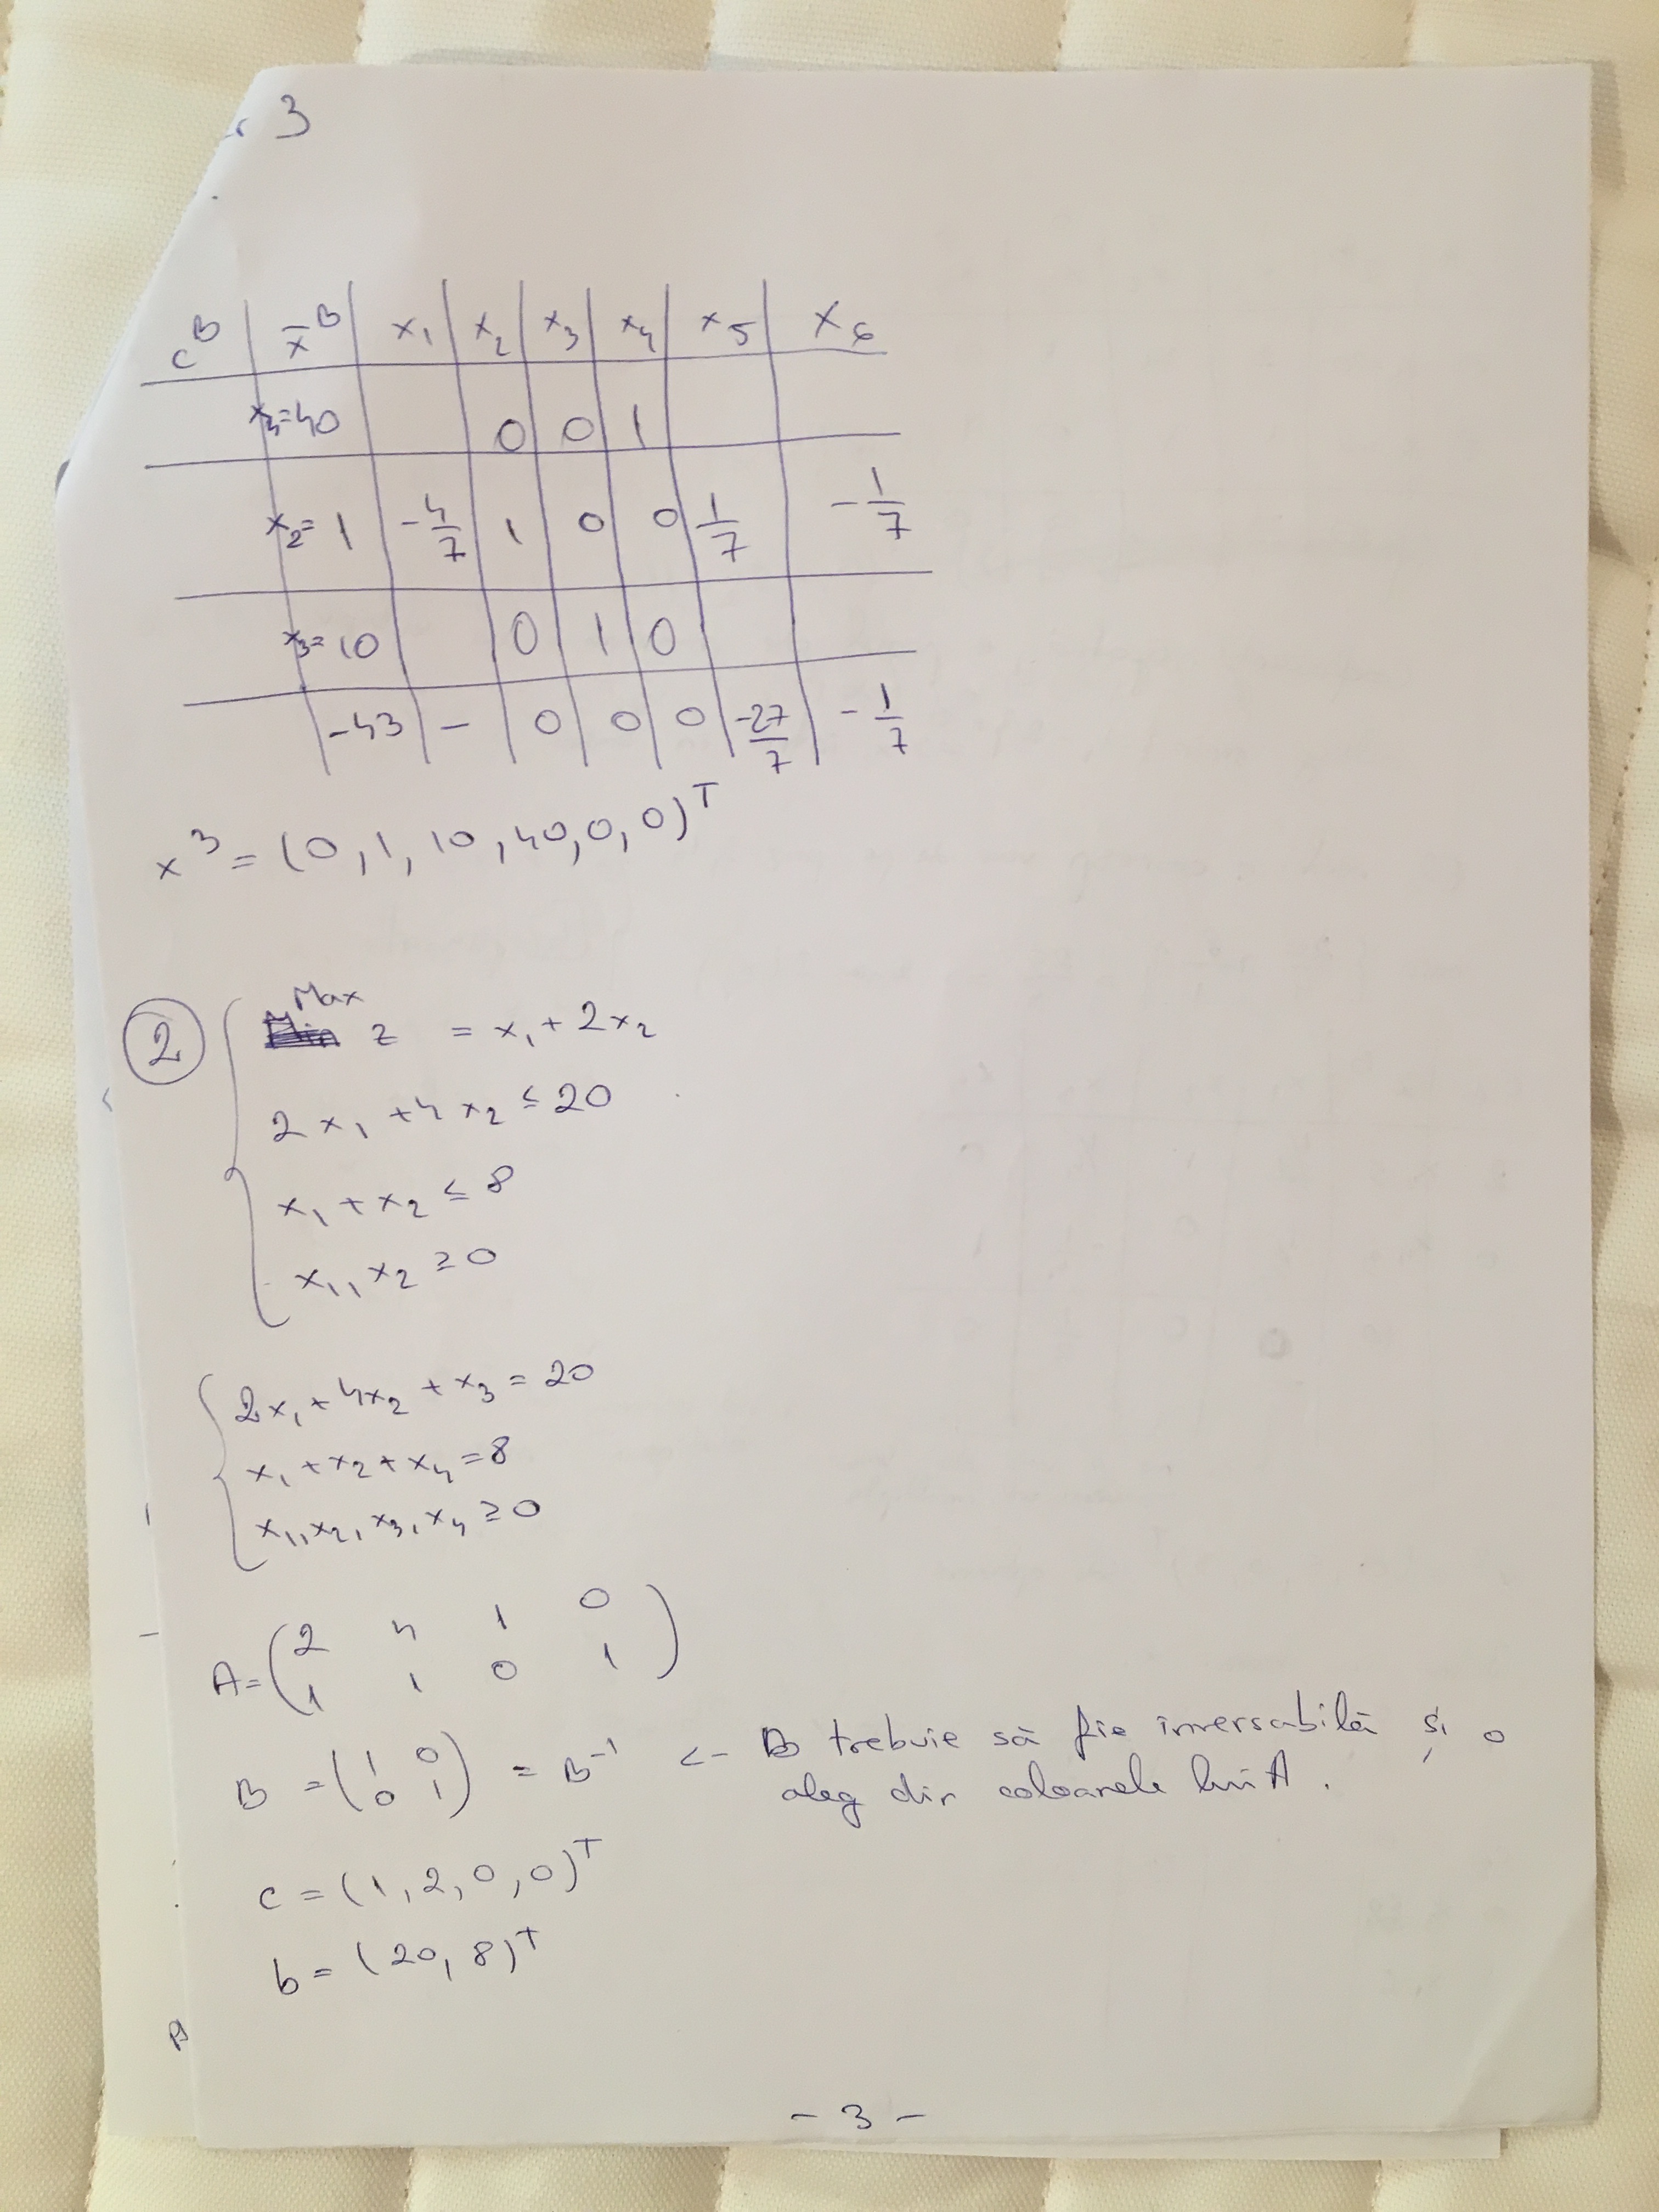 3
c^B | x̄^B | x₁ | x₂ | x₃ | x₄ | x₅ | x₆
x₄=40 | | 0 | 0 | 1 | |
x₂=1 | -4/7 | 1 | 0 | 0 | 1/7 | -1/7
x₃=10 | | 0 | 1 | 0 | |
-43 | - | 0 | 0 | 0 | -27/7 | -1/7
x³ = (0, 1, 10, 40, 0, 0)ᵀ
② Max z = x₁ + 2x₂
2x₁ + 4x₂ ≤ 20
x₁ + x₂ ≤ 8
x₁, x₂ ≥ 0
2x₁ + 4x₂ + x₃ = 20
x₁ + x₂ + x₄ = 8
x₁, x₂, x₃, x₄ ≥ 0
A = ( 2 4 1 0
1 1 0 1 )
B = ( 1 0
0 1 ) = B⁻¹ <- B trebuie să fie inversabilă și o
aleg din coloanele lui A.
c = (1, 2, 0, 0)ᵀ
b = (20, 8)ᵀ
- 3 -